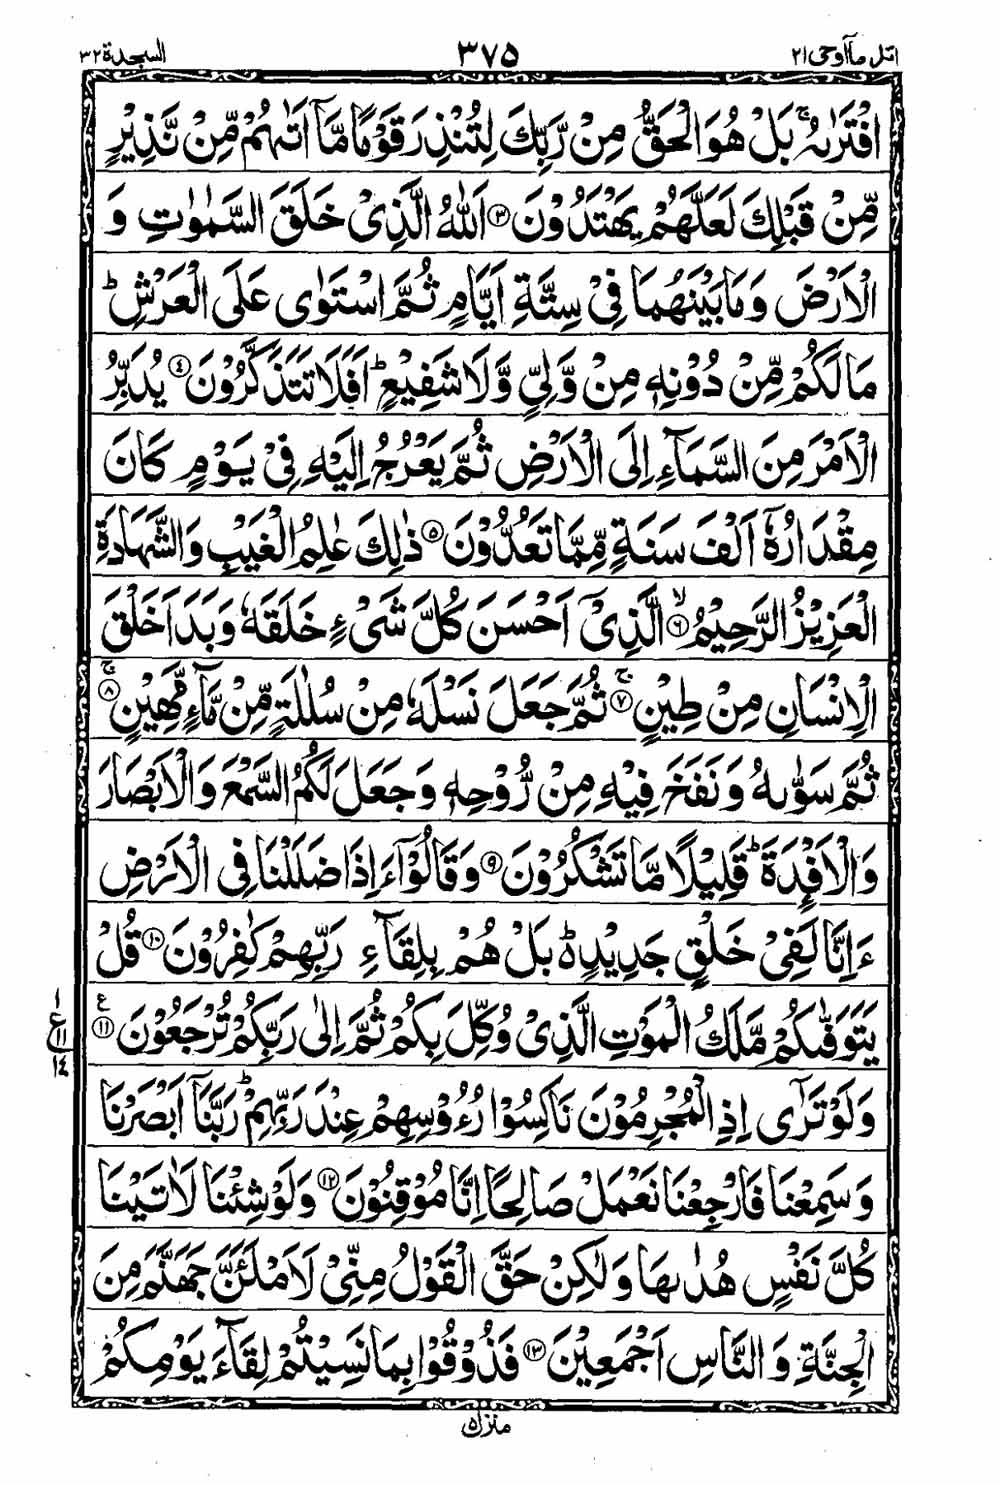 اتل مآاوحی ۲۱
۳۷۵
السجدة ۳۲
افْتَرٰىهُ ۚ بَلْ هُوَ الْحَقُّ مِنْ رَّبِّكَ لِتُنْذِرَ قَوْمًا مَّاۤ اَتٰىهُمْ مِّنْ نَّذِيْرٍ
مِّنْ قَبْلِكَ لَعَلَّهُمْ يَهْتَدُوْنَ ۝۳ اَللّٰهُ الَّذِيْ خَلَقَ السَّمٰوٰتِ وَ
الْاَرْضَ وَمَا بَيْنَهُمَا فِيْ سِتَّةِ اَيَّامٍ ثُمَّ اسْتَوٰى عَلَى الْعَرْشِ ؕ
مَا لَكُمْ مِّنْ دُوْنِهٖ مِنْ وَّلِيٍّ وَّلَا شَفِيْعٍ ؕ اَفَلَا تَتَذَكَّرُوْنَ ۝۴ يُدَبِّرُ
الْاَمْرَ مِنَ السَّمَآءِ اِلَى الْاَرْضِ ثُمَّ يَعْرُجُ اِلَيْهِ فِيْ يَوْمٍ كَانَ
مِقْدَارُهٗۤ اَلْفَ سَنَةٍ مِّمَّا تَعُدُّوْنَ ۝۵ ذٰلِكَ عٰلِمُ الْغَيْبِ وَالشَّهَادَةِ
الْعَزِيْزُ الرَّحِيْمُ ۙ۝۶ الَّذِيْۤ اَحْسَنَ كُلَّ شَيْءٍ خَلَقَهٗ وَبَدَاَ خَلْقَ
الْاِنْسَانِ مِنْ طِيْنٍ ۚ۝۷ ثُمَّ جَعَلَ نَسْلَهٗ مِنْ سُلٰلَةٍ مِّنْ مَّآءٍ مَّهِيْنٍ ۚ۝۸
ثُمَّ سَوّٰىهُ وَنَفَخَ فِيْهِ مِنْ رُّوْحِهٖ وَجَعَلَ لَكُمُ السَّمْعَ وَالْاَبْصَارَ
وَالْاَفْـِٕدَةَ ؕ قَلِيْلًا مَّا تَشْكُرُوْنَ ۝۹ وَقَالُوْۤا ءَاِذَا ضَلَلْنَا فِى الْاَرْضِ
ءَاِنَّا لَفِيْ خَلْقٍ جَدِيْدٍ ؕ۬ بَلْ هُمْ بِلِقَآءِ رَبِّهِمْ كٰفِرُوْنَ ۝۱۰ قُلْ
يَتَوَفّٰىكُمْ مَّلَكُ الْمَوْتِ الَّذِيْ وُكِّلَ بِكُمْ ثُمَّ اِلٰى رَبِّكُمْ تُرْجَعُوْنَ ۝۱۱ ع
۱
ع ۱۱
۱۴
وَلَوْ تَرٰۤى اِذِ الْمُجْرِمُوْنَ نَاكِسُوْا رُءُوْسِهِمْ عِنْدَ رَبِّهِمْ ؕ رَبَّنَاۤ اَبْصَرْنَا
وَسَمِعْنَا فَارْجِعْنَا نَعْمَلْ صَالِحًا اِنَّا مُوْقِنُوْنَ ۝۱۲ وَلَوْ شِئْنَا لَاٰتَيْنَا
كُلَّ نَفْسٍ هُدٰىهَا وَلٰكِنْ حَقَّ الْقَوْلُ مِنِّيْ لَاَمْلَـَٔنَّ جَهَنَّمَ مِنَ
الْجِنَّةِ وَالنَّاسِ اَجْمَعِيْنَ ۝۱۳ فَذُوْقُوْا بِمَا نَسِيْتُمْ لِقَآءَ يَوْمِكُمْ
منزل ۵